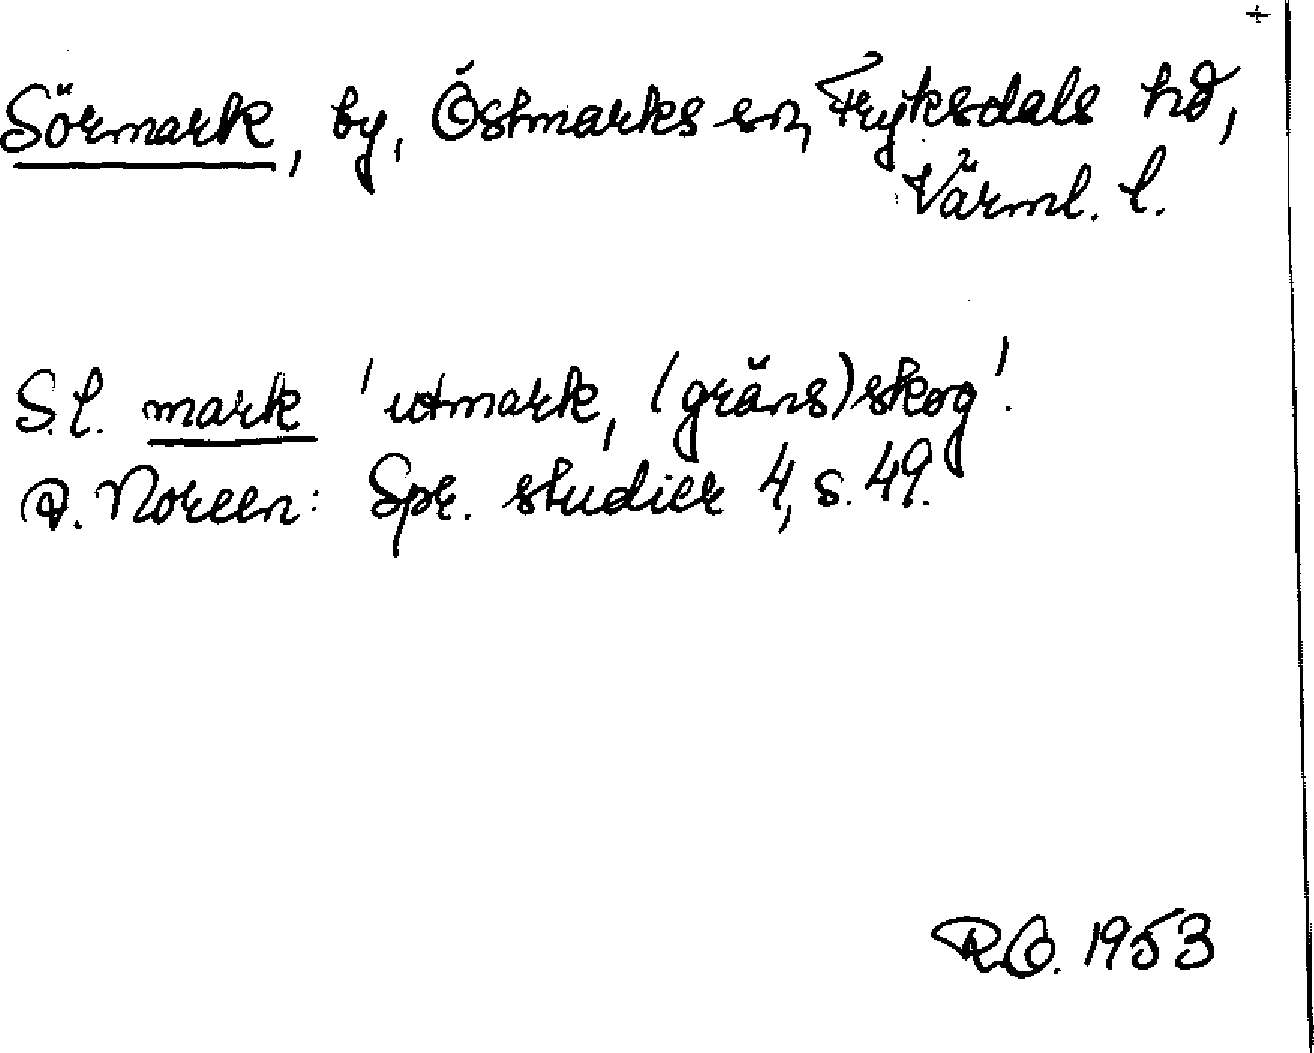 Sörmark, by, Östmarks sn, Fryksdals hd,
Värml. l.
S.l. mark 'utmark, (gräns)skog'.
A. Noreen: Spr. studier 4, s. 49.
R.O. 1953